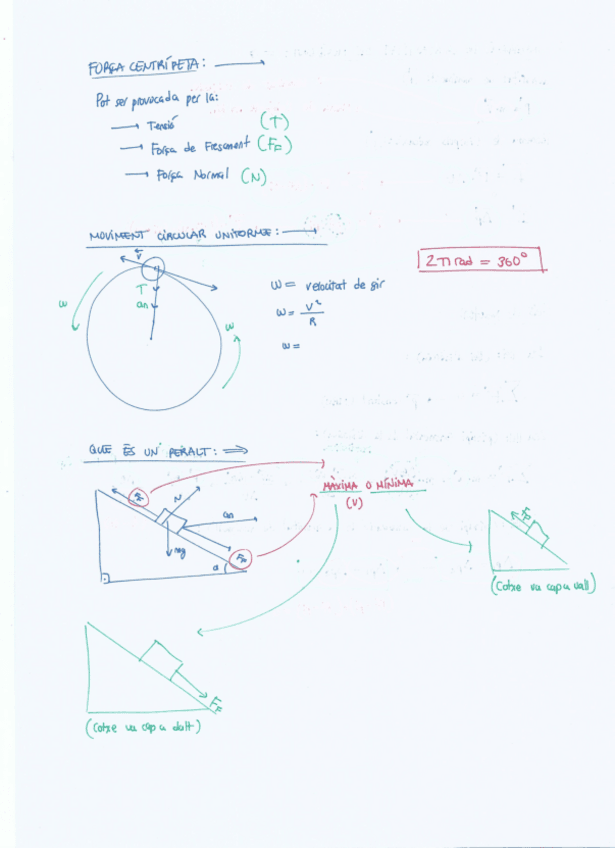 FORÇA CENTRÍPETA: →
Pot ser provocada per la:
→ Tensió (T)
→ Força de Fregament (FF)
→ Força Normal (N)
MOVIMENT CIRCULAR UNIFORME: →
2π rad = 360°
v
T
an
ω
ω
ω = velocitat de gir
ω = V²/R
ω =
QUE ÉS UN PERALT: ⇒
MÀXIMA O MÍNIMA
(V)
N
an
mg
α
FF
(Cotxe va cap a vall)
FF
(Cotxe va cap a dalt)